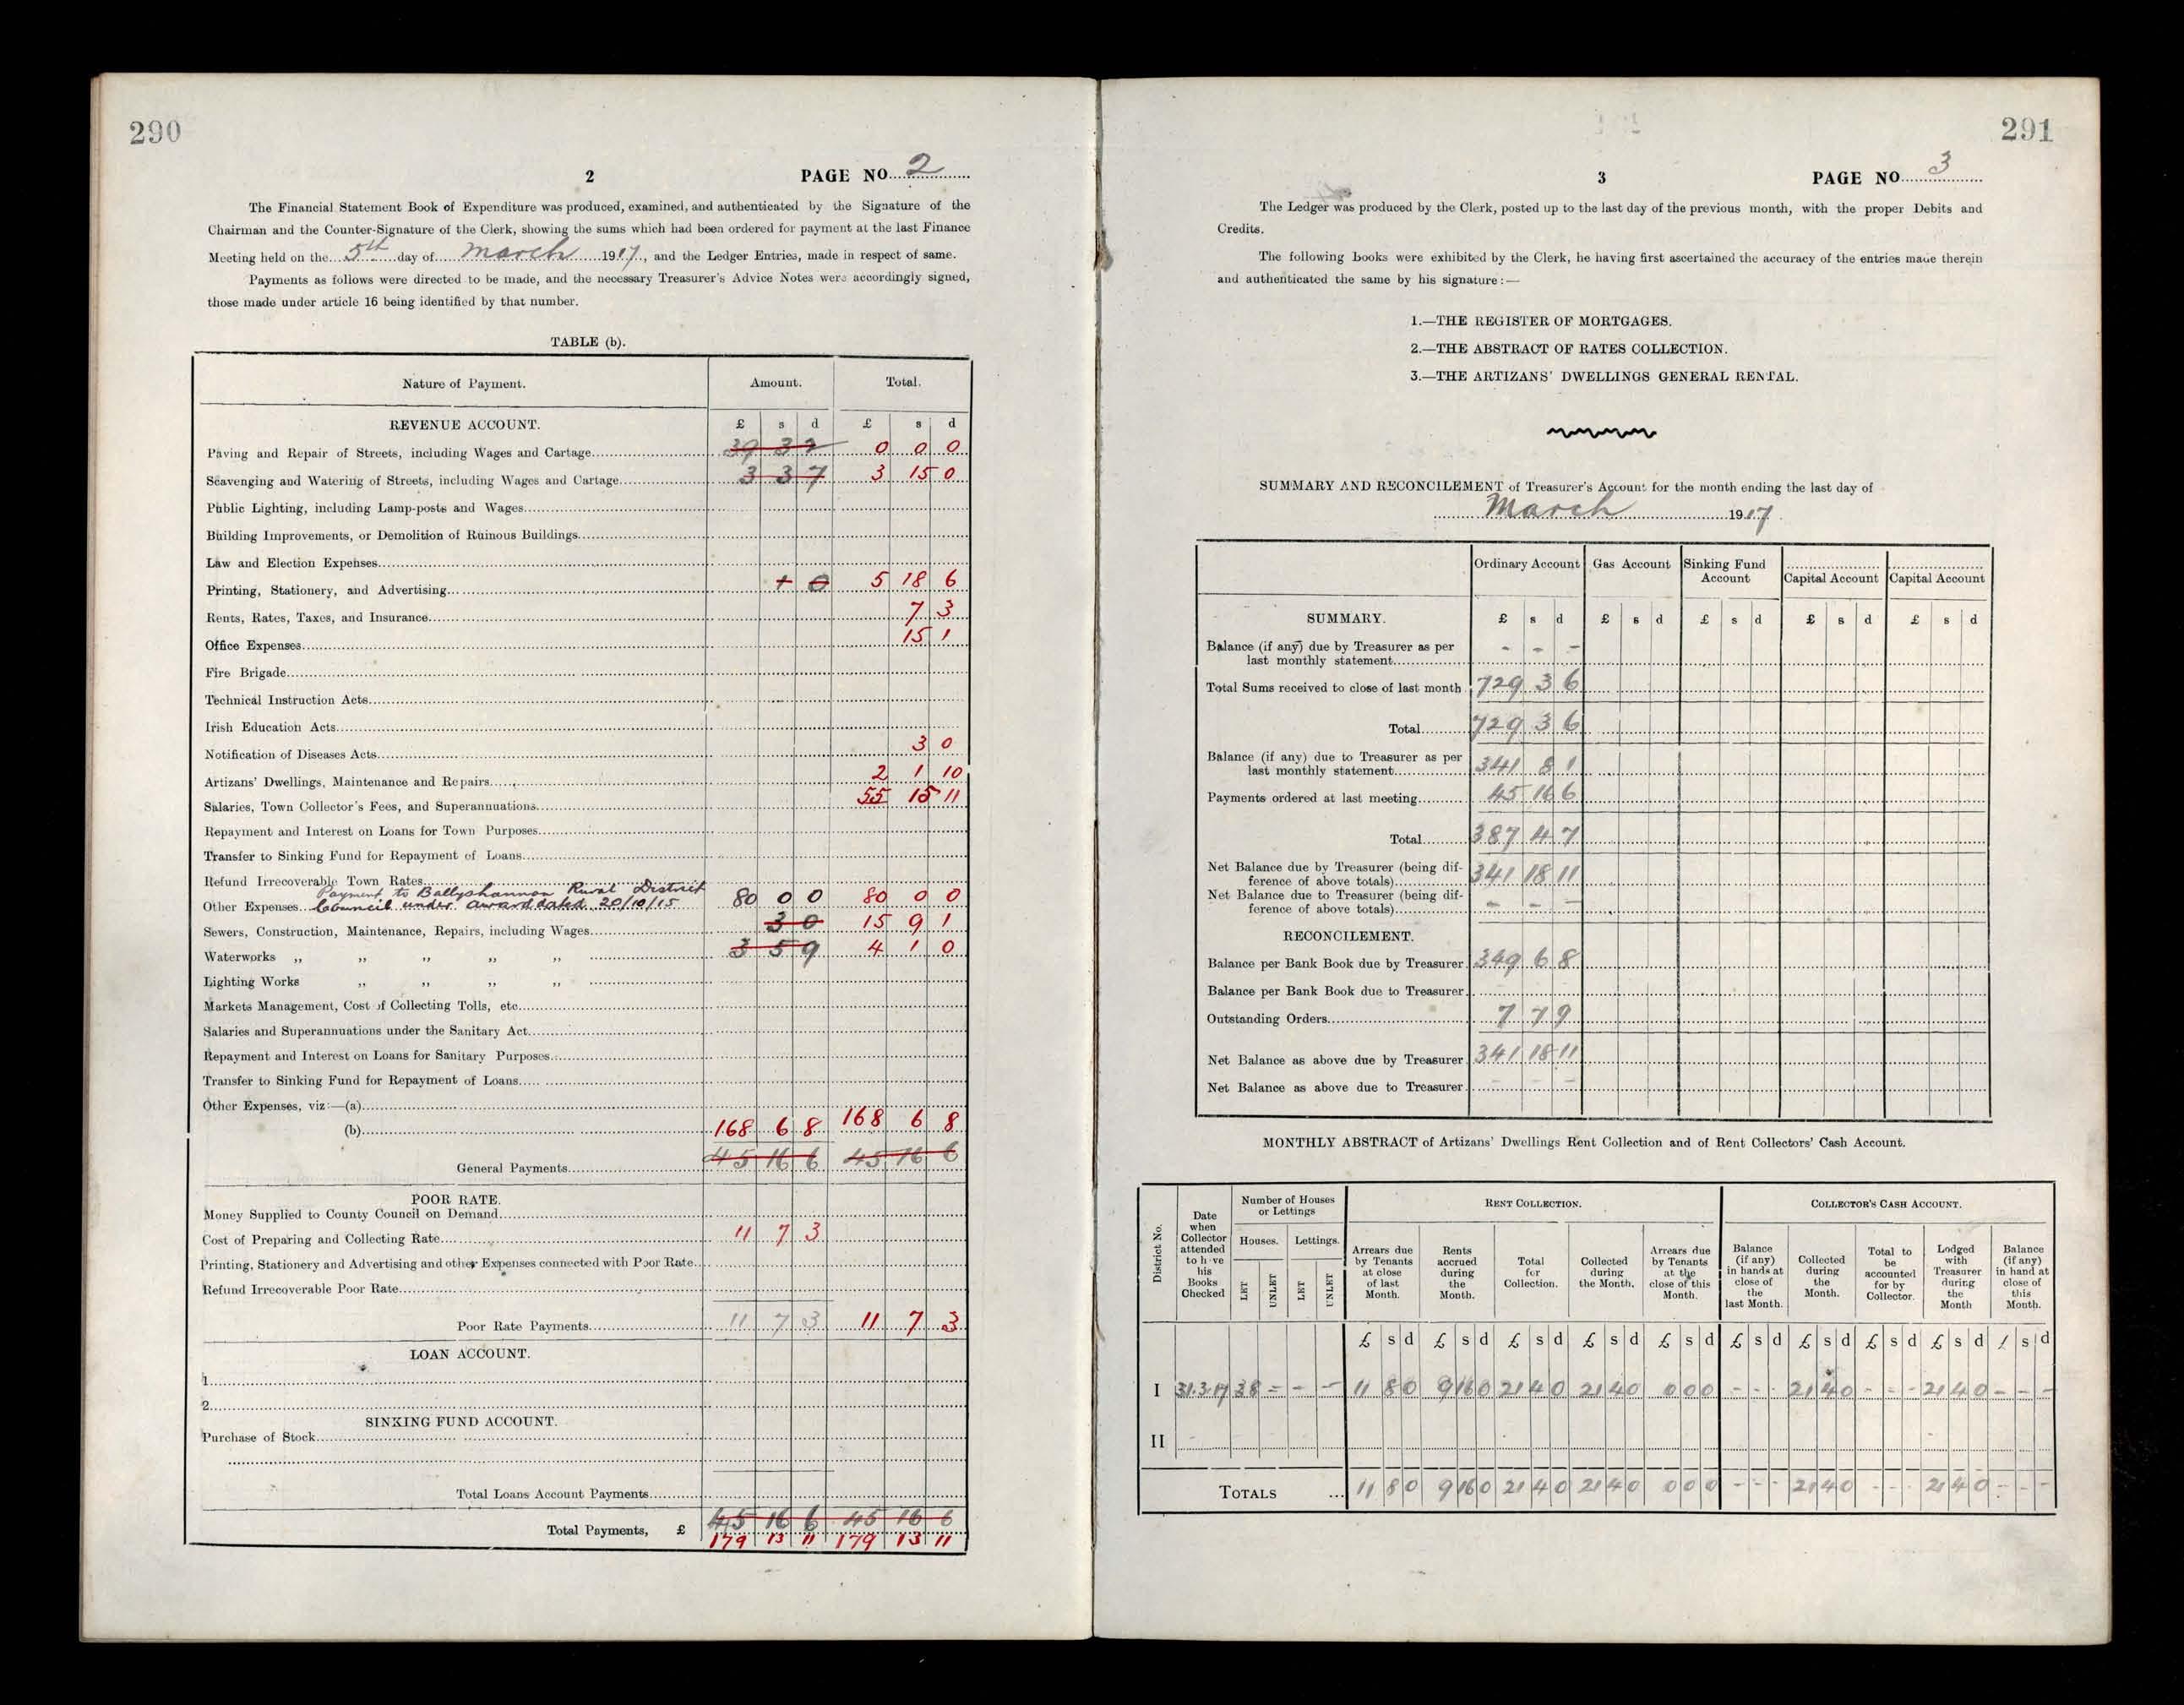 290
2 PAGE NO. 2
The Financial Statement Book of Expenditure was produced, examined, and authenticated by the Signature of the
Chairman and the Counter-Signature of the Clerk, showing the sums which had been ordered for payment at the last Finance
Meeting held on the 5th day of March 1917, and the Ledger Entries, made in respect of same.
Payments as follows were directed to be made, and the necessary Treasurer's Advice Notes were accordingly signed,
those made under article 16 being identified by that number.
TABLE (b).
Nature of Payment. Amount. Total.
REVENUE ACCOUNT. £ s d £ s d
Paving and Repair of Streets, including Wages and Cartage 0 0 0
Scavenging and Watering of Streets, including Wages and Cartage 3 3 7 3 15 0
Public Lighting, including Lamp-posts and Wages
Building Improvements, or Demolition of Ruinous Buildings
Law and Election Expenses
Printing, Stationery, and Advertising 5 18 6
Rents, Rates, Taxes, and Insurance 7 3
Office Expenses 15 1
Fire Brigade
Technical Instruction Acts
Irish Education Acts
Notification of Diseases Acts 3 0
Artizans' Dwellings, Maintenance and Repairs 2 1 10
Salaries, Town Collector's Fees, and Superannuations 55 15 11
Repayment and Interest on Loans for Town Purposes
Transfer to Sinking Fund for Repayment of Loans
Refund Irrecoverable Town Rates
Payment to Ballyshannon Rural District
Other Expenses Council under award dated 20/10/15 80 0 0 80 0 0
Sewers, Construction, Maintenance, Repairs, including Wages 3 0 15 9 1
Waterworks ,, ,, ,, ,, ,, 3 5 9 4 1 0
Lighting Works ,, ,, ,, ,,
Markets Management, Cost of Collecting Tolls, etc
Salaries and Superannuations under the Sanitary Act
Repayment and Interest on Loans for Sanitary Purposes
Transfer to Sinking Fund for Repayment of Loans
Other Expenses, viz:—(a)
(b) 168 6 8 168 6 8
General Payments 45 16 6 45 16 6
POOR RATE.
Money Supplied to County Council on Demand
Cost of Preparing and Collecting Rate 11 7 3
Printing, Stationery and Advertising and other Expenses connected with Poor Rate
Refund Irrecoverable Poor Rate
Poor Rate Payments 11 7 3 11 7 3
LOAN ACCOUNT.
1
2
SINKING FUND ACCOUNT.
Purchase of Stock
Total Loans Account Payments
45 16 6 45 16 6
Total Payments, £ 179 13 11 179 13 11
291
3 PAGE NO. 3
The Ledger was produced by the Clerk, posted up to the last day of the previous month, with the proper Debits and
Credits.
The following books were exhibited by the Clerk, he having first ascertained the accuracy of the entries made therein
and authenticated the same by his signature:—
1.—THE REGISTER OF MORTGAGES.
2.—THE ABSTRACT OF RATES COLLECTION.
3.—THE ARTIZANS' DWELLINGS GENERAL RENTAL.
SUMMARY AND RECONCILEMENT of Treasurer's Account for the month ending the last day of
March 1917
Ordinary Account Gas Account Sinking Fund Account Capital Account Capital Account
SUMMARY. £ s d £ s d £ s d £ s d £ s d
Balance (if any) due by Treasurer as per
last monthly statement - - -
Total Sums received to close of last month 729 3 6
Total 729 3 6
Balance (if any) due to Treasurer as per
last monthly statement 341 8 1
Payments ordered at last meeting 45 16 6
Total 387 4 7
Net Balance due by Treasurer (being dif-
ference of above totals) 341 18 11
Net Balance due to Treasurer (being dif-
ference of above totals) - - -
RECONCILEMENT.
Balance per Bank Book due by Treasurer 349 6 8
Balance per Bank Book due to Treasurer
Outstanding Orders 7 7 9
Net Balance as above due by Treasurer 341 18 11
Net Balance as above due to Treasurer - - -
MONTHLY ABSTRACT of Artizans' Dwellings Rent Collection and of Rent Collectors' Cash Account.
District No.
Date when Collector attended to h ve his Books Checked
Number of Houses or Lettings
Houses. Lettings.
LET UNLET LET UNLET
RENT COLLECTION.
Arrears due by Tenants at close of last Month.
Rents accrued during the Month.
Total for Collection.
Collected during the Month.
Arrears due by Tenants at the close of this Month.
COLLECTOR'S CASH ACCOUNT.
Balance (if any) in hands at close of the last Month.
Collected during the Month.
Total to be accounted for by Collector.
Lodged with Treasurer during the Month
Balance (if any) in hand at close of this Month.
£ s d £ s d £ s d £ s d £ s d £ s d £ s d £ s d £ s d £ s d
I 31.3.17 38 - - - 11 8 0 9 16 0 21 4 0 21 4 0 0 0 0 - - - 21 4 0 - - - 21 4 0 - - -
II
TOTALS ... 11 8 0 9 16 0 21 4 0 21 4 0 0 0 0 - - - 21 4 0 - - - 21 4 0 - - -